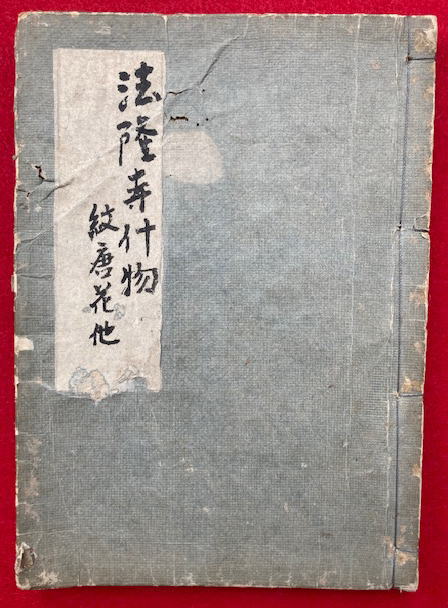 法隆寺什物
紋唐花他